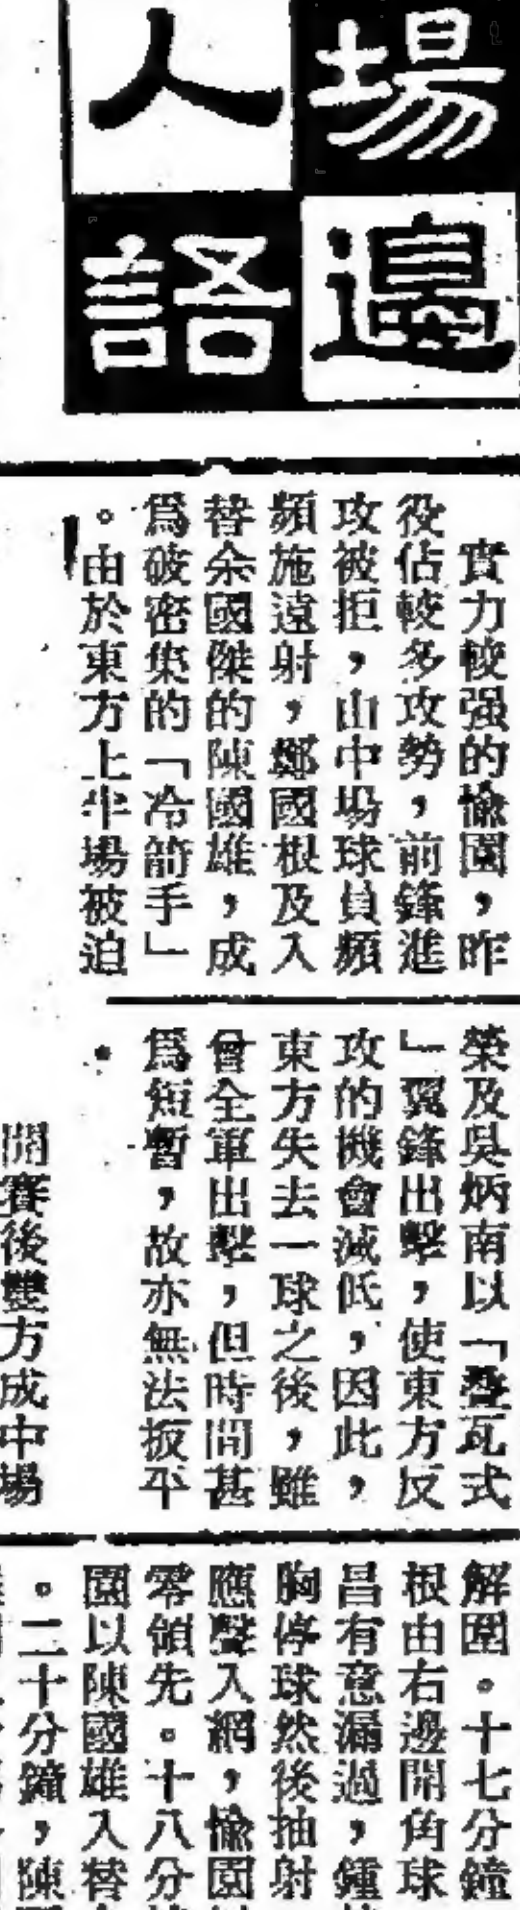 場邊
人語
實力較强的愉園，昨
役佔較多攻勢，前鋒進
攻被拒，由中場球員頻
頻施遠射，鄭國根及入
替余國傑的陳國雄，成
爲破密集的「冷箭手」
。由於東方上半場被迫
榮及吳炳南以「疊瓦式
」翼鋒出擊，使東方反
攻的機會減低，因此，
東方失去一球之後，雖
曾全軍出擊，但時間甚
爲短暫，故亦無法扳平
開賽後雙方成中場
解圍。十七分鐘
根由右邊開角球
昌有意漏過，鍾
胸停球然後抽射
應聲入網，愉園
零領先。十八分
園以陳國雄入替
。二十分鐘，陳